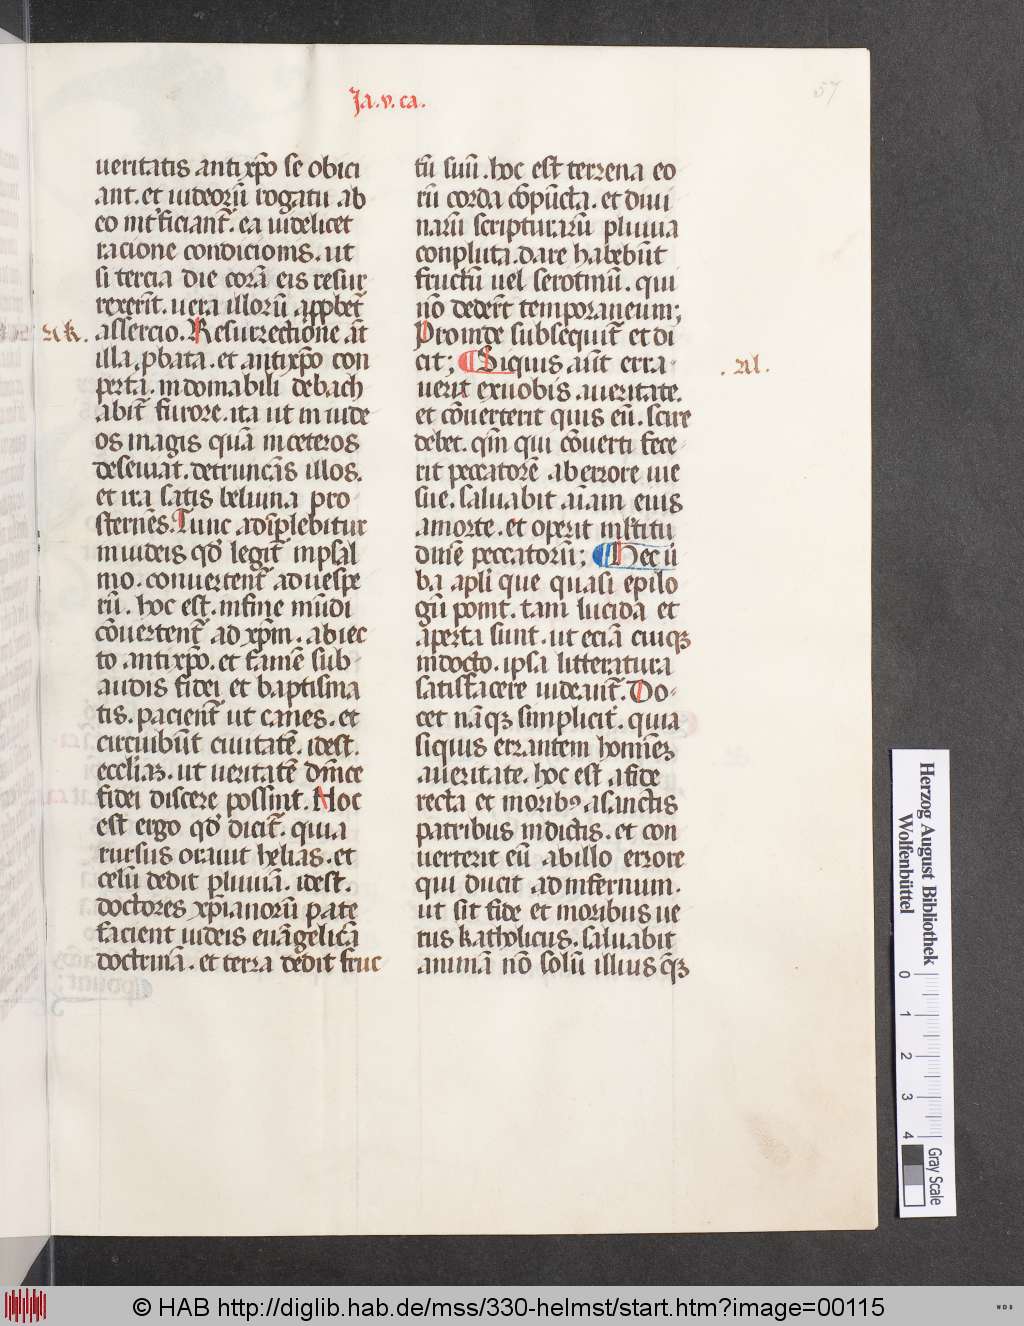 57
Ja.v.ca.
ueritatis antixp̄o se obici
ant. et iudeorū rogatu ab
eo int̄ficiant̄. ea uidelicet
racione condicionis. ut
si tercia die corā eis resur
rexerīt. uera illorū ꝓbet̄
assercio. Resurrectione aūt
illa ꝓbata. et antixp̄o con
perta. indomabili debach
abit̄ furore. ita ut in iude
os magis quā in ceteros
deseuiat. detruncās illos.
et ita satis beluina pro
sternēs. Tunc adīplebitur
in iudeis qd̄ legit̄ in psal
mo. conuertent̄ ad uespe
rū. hoc est. in fine mūdi
cōuertent̄ ad xp̄m. abiec
to antixp̄o. et famē sub
audis fidei et baptisma
tis. pacient̄ ut canes. et
circuibūt ciuitatē. idest.
eccliaꝫ. ut ueritatē dn̄ice
fidei discere possint. Hoc
est ergo qd̄ dicit̄. quia
rursus orauit helias. et
celū dedit pluuiā. idest.
doctores xp̄ianorū pate
facient iudeis euāgelicā
doctrinā. et terra dedit fruc
tū suū. hoc est terrena eo
rū corda cōpūcta. et diui
narū scripturarū pluuia
conpluta. dare habebūt
fructū uel serotinū. qui
nō dedert̄ temporaneum;
Proinde subsequit̄ et di
cit; Siquis aūt erra
uerit ex uobis a ueritate.
et cōuerterit quis eū. scire
debet. qm̄ qui cōuerti fece
rit peccatorē ab errore uie
sue. saluabit aīam eius
a morte. et operit m̄ltitu
dinē peccatorū; Hec ū
ba apl̄i que quasi epilo
gū ponit. tam lucida et
aperta sunt. ut eciā cuiqꝫ
indocto. ipsa litteratura
satisfacere uideant̄. Do
cet nāqꝫ simplicit̄. quia
siquis errantem hominēꝫ
a ueritate. hoc est a fide
recta et moribꝰ a sanctis
patribus indictis. et con
uerterit eū ab illo errore
qui ducit ad infernum.
ut sit fide et moribus ue
rus katholicus. saluabit
animā nō solū illius qꝫ
.al.
Herzog August Bibliothek
Wolfenbüttel
0 1 2 3 4
Gray Scale
© HAB http://diglib.hab.de/mss/330-helmst/start.htm?image=00115